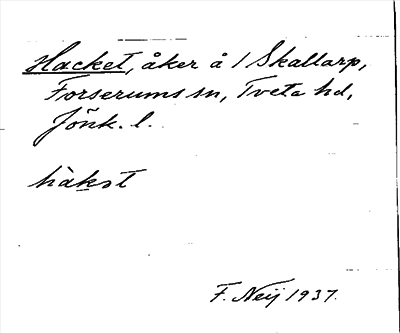 Hacket, åker å 1 Skallarp,
Forserums sn, Tveta hd,
Jönk. l.
hàkət
F. Neij 1937.